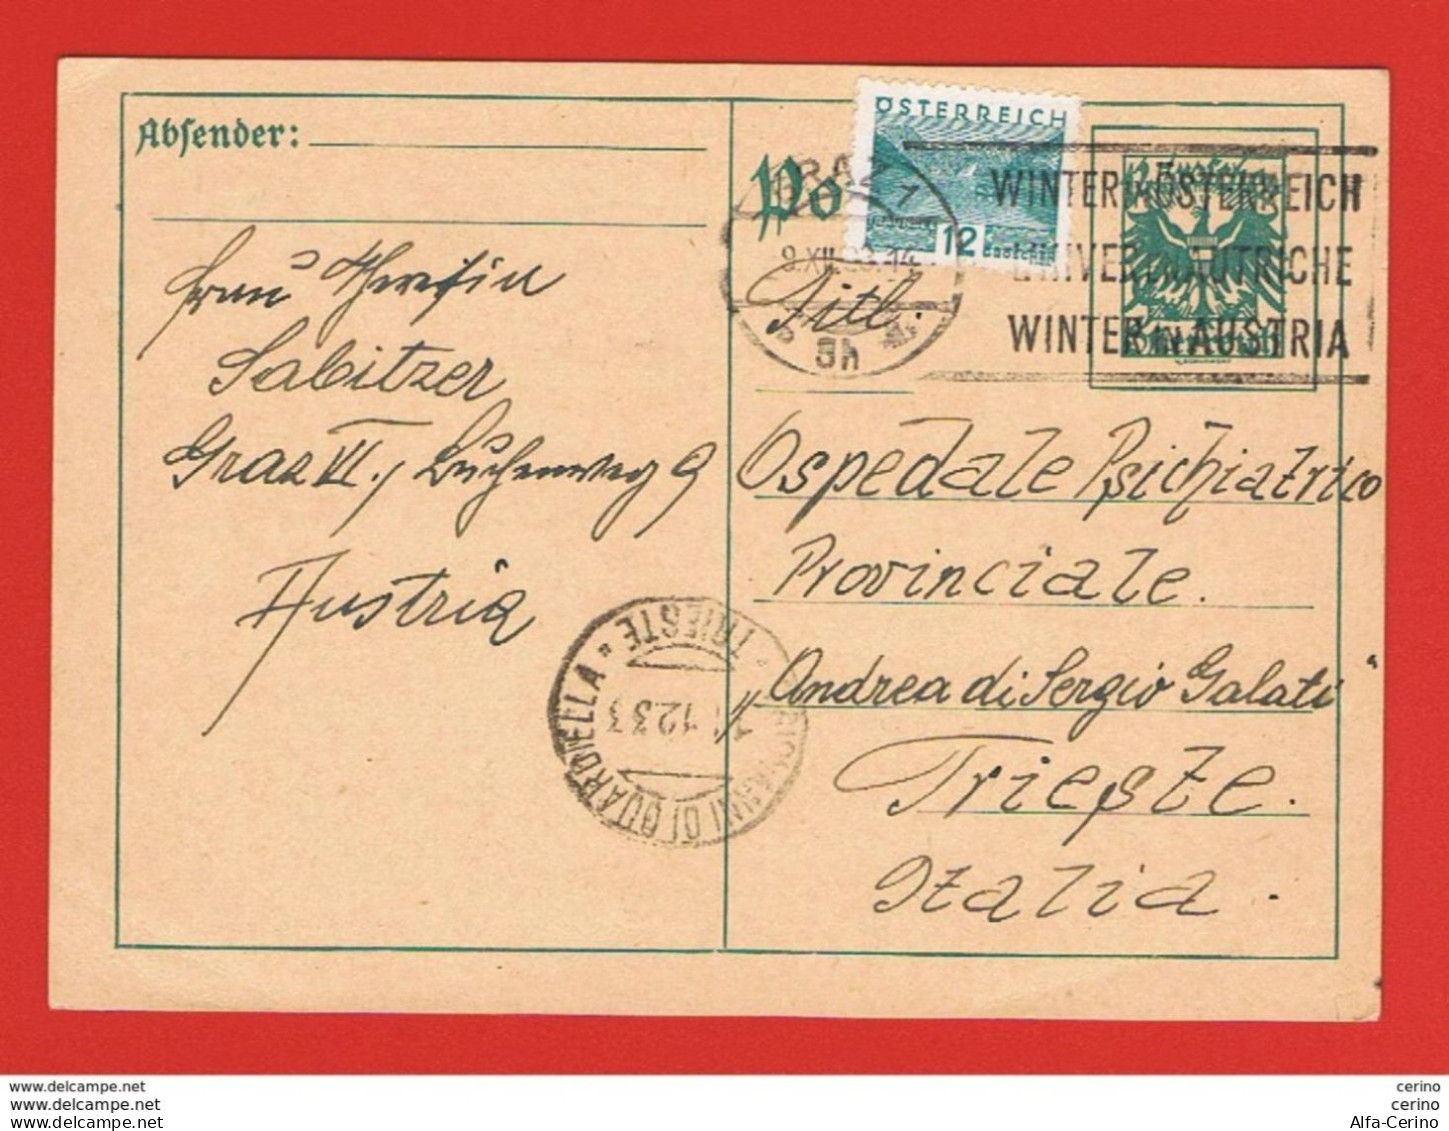 Absender:
Po
ÖSTERREICH
12
GRAZ 1
9.XII.33.14
5h
WINTER IN ÖSTERREICH
L'HIVER EN AUTRICHE
WINTER IN AUSTRIA
Frau Theresia
Sabitzer
Graz VI., Buchenweg 9
Austria
Titl.
Ospedale Psichiatrico
Provinciale.
Andrea di Sergio Galati
Trieste.
Italia.
GIOVANNI DI GUARDIELLA * TRIESTE *
12 33
www.delcampe.net
www.delcampe.net
www.delcampe.net
cerino
cerino
Alfa-Cerino